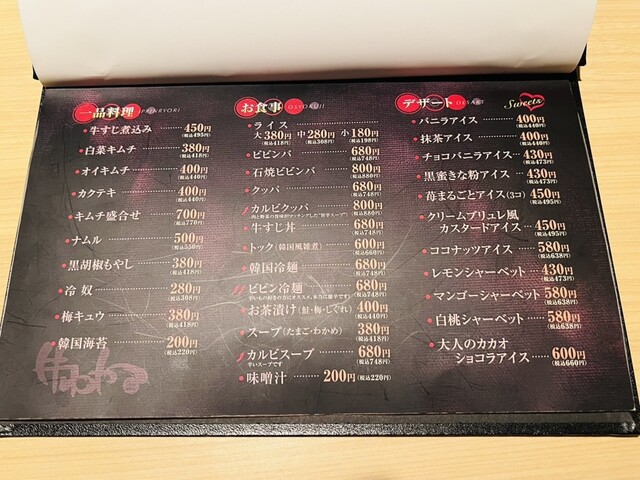 一品料理
牛すじ煮込み 450円
(税込495円)
白菜キムチ 380円
(税込418円)
オイキムチ 400円
(税込440円)
カクテキ 400円
(税込440円)
キムチ盛合せ 700円
(税込770円)
ナムル 500円
(税込550円)
黒胡椒もやし 380円
(税込418円)
冷奴 280円
(税込308円)
梅キュウ 380円
(税込418円)
韓国海苔 200円
(税込220円)
お食事 OSYOKUJI
ライス
大380円 中280円 小180円
(税込418円) (税込308円) (税込198円)
ビビンバ 680円
(税込748円)
石焼ビビンバ 800円
(税込880円)
クッパ 680円
(税込748円)
カルビクッパ 800円
(税込880円)
牛すじ丼 680円
(税込748円)
トック(韓国風雑煮) 600円
(税込660円)
韓国冷麺 680円
(税込748円)
ビビン冷麺 680円
(税込748円)
お茶漬け(鮭・梅・しぐれ) 400円
(税込440円)
スープ(たまご・わかめ) 380円
(税込418円)
カルビスープ 680円
辛いスープです (税込748円)
味噌汁 200円(税込220円)
デザート DESART Sweets
バニラアイス 400円
(税込440円)
抹茶アイス 400円
(税込440円)
チョコバニラアイス 430円
(税込473円)
黒蜜きな粉アイス 430円
(税込473円)
苺まるごとアイス(3コ) 450円
(税込495円)
クリームブリュレ風
カスタードアイス 450円
(税込495円)
ココナッツアイス 580円
(税込638円)
レモンシャーベット 430円
(税込473円)
マンゴーシャーベット 580円
(税込638円)
白桃シャーベット 580円
(税込638円)
大人のカカオ
ショコラアイス 600円
(税込660円)